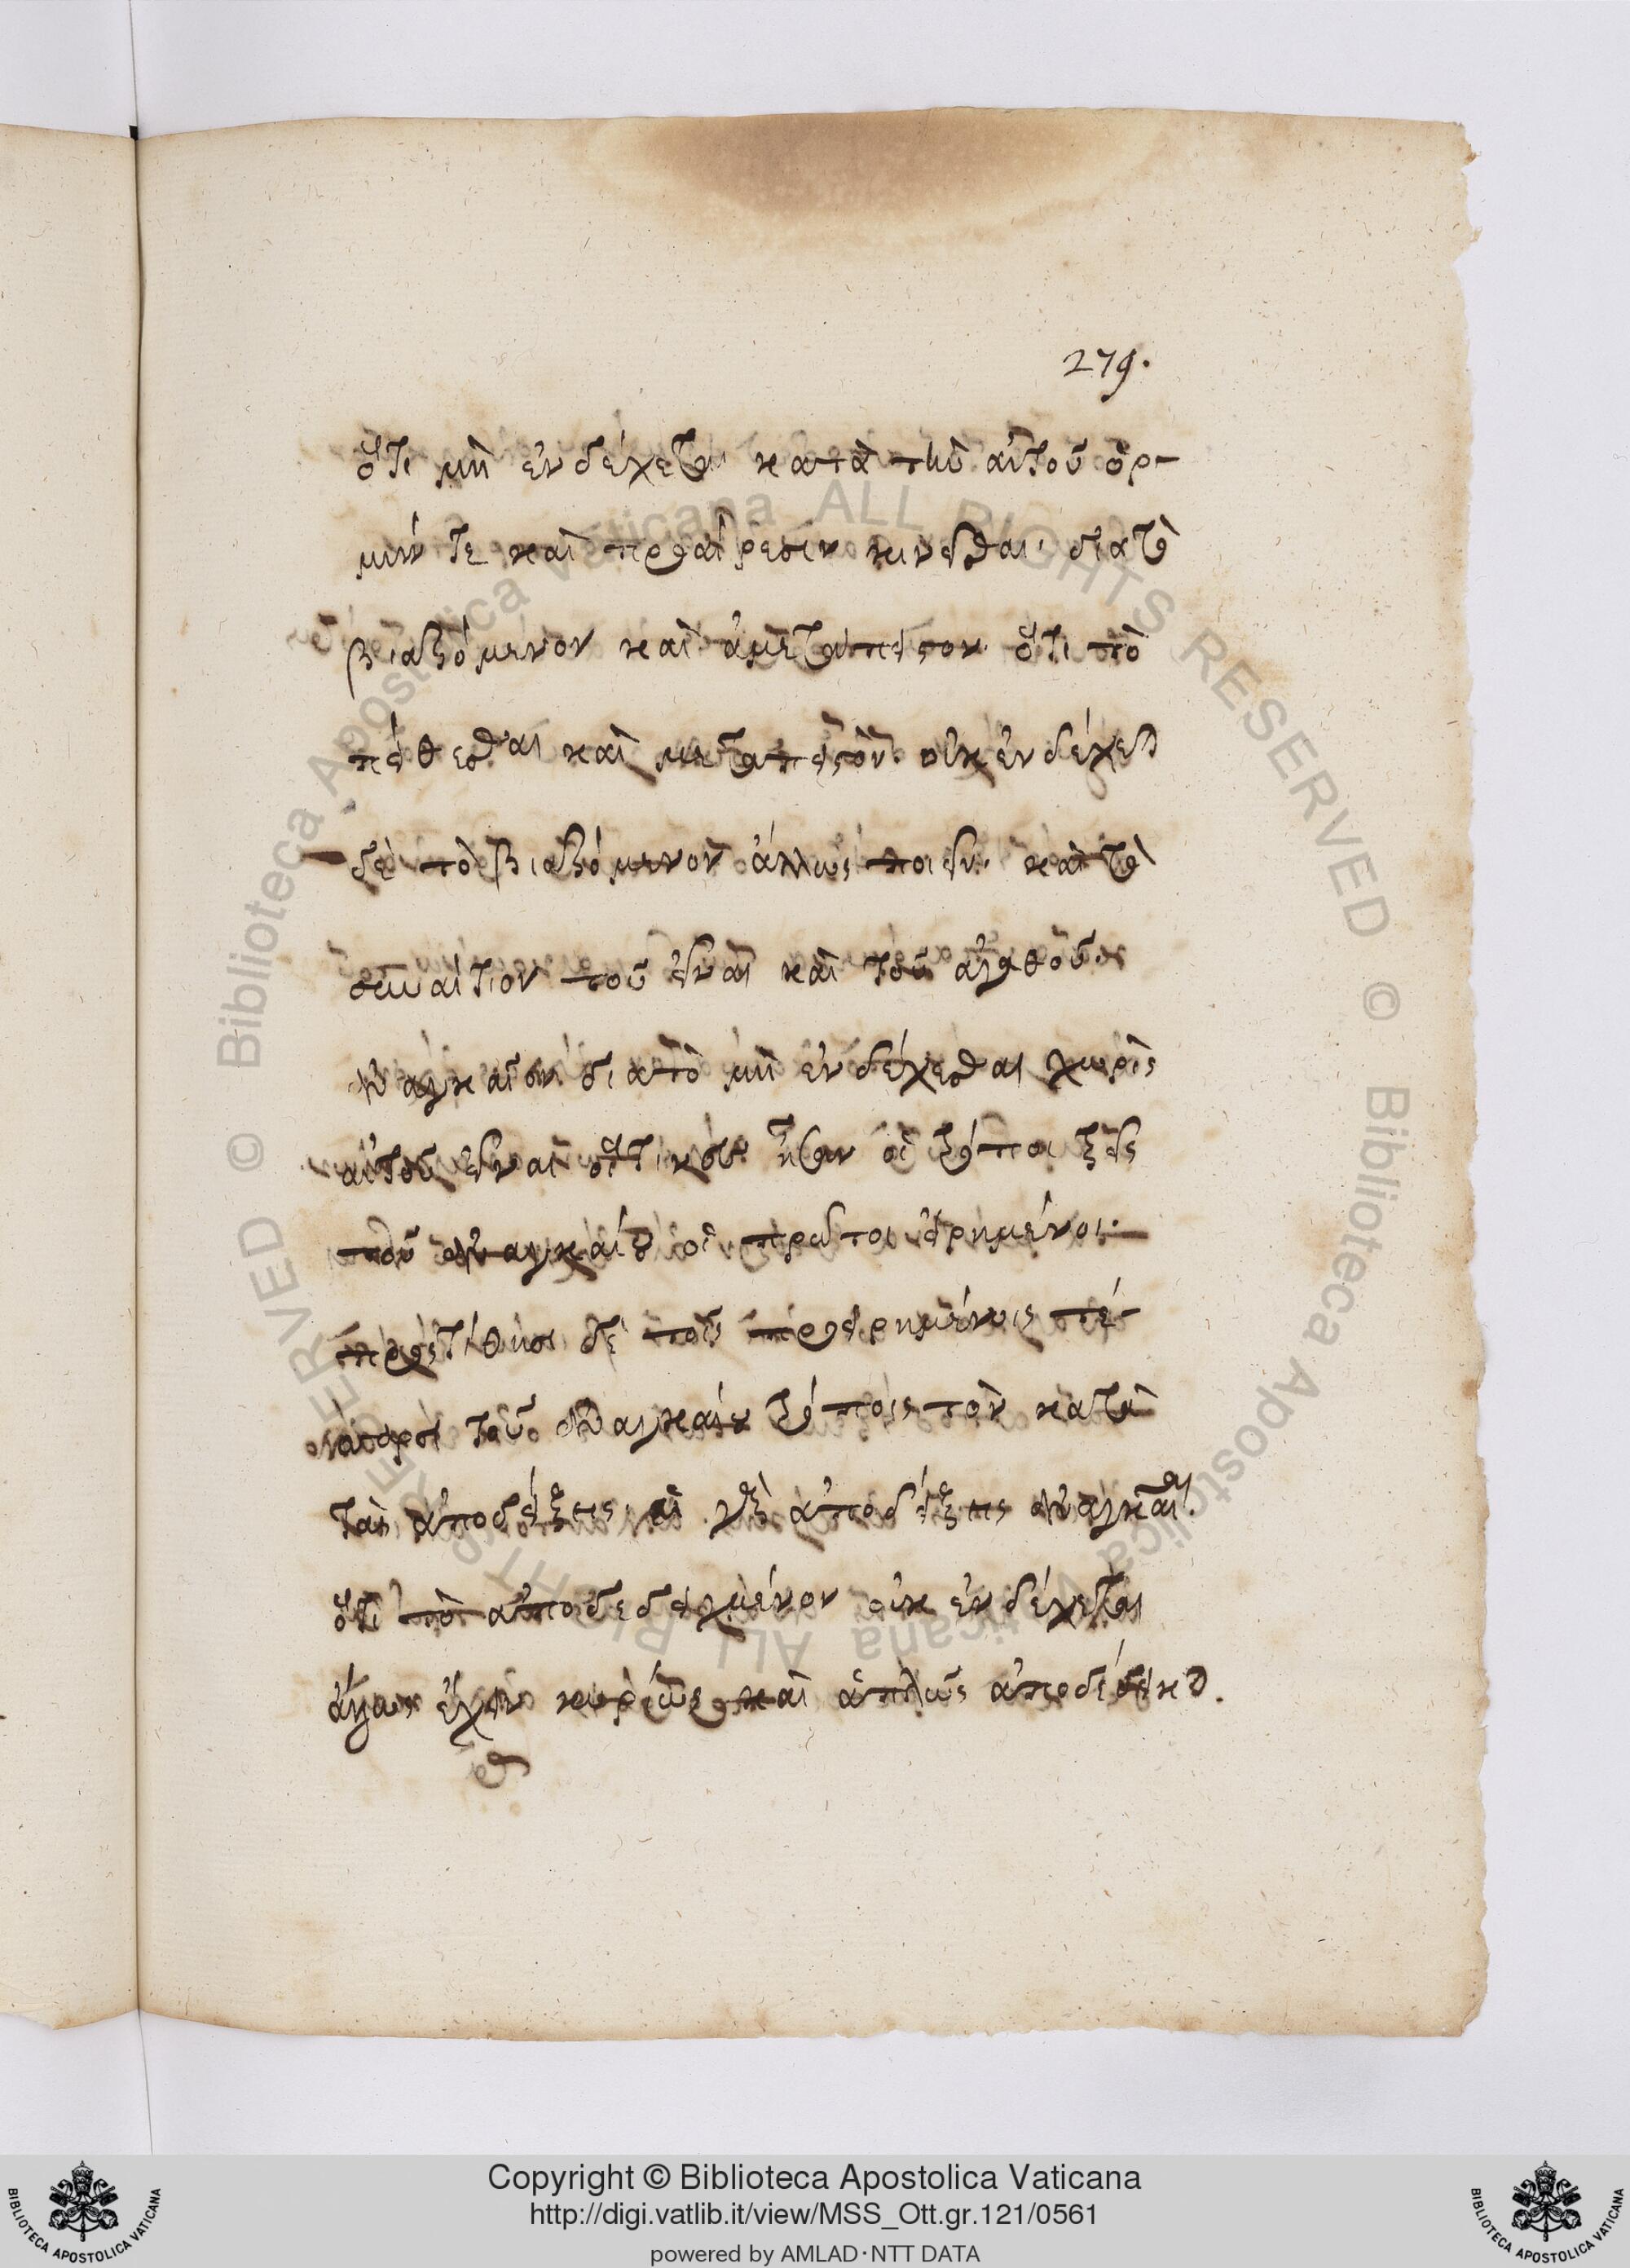 279.
ὅτι μὴ ἐνδέχεται κατὰ τὴν αὐτοῦ ὁρ-
μήν τε καὶ προαίρεσιν κινεῖσθαι· διὰ τὸ
βιαζόμενον καὶ ἀμετάπειστον· ὅτι τὸ
πείθεσθαι καὶ μεταπειστὸν· οὐκ ἐνδέχεται
δὲ τὸ βιαζόμενον ἄλλως ποιεῖν· καὶ τὸ
συναίτιον τοῦ εἶναι καὶ τοῦ ἀγαθοῦ
ἀναγκαῖον· διὰ τὸ μὴ ἐνδέχεσθαι χωρὶς
αὐτοῦ εἶναι ἦσαν οἱ τρόποι τρεῖς
τοῦ ἀναγκαίου οἱ πρῶτοι εἰρημένοι·
προςτίθησι δὲ τοῖς προειρημένοις τέ-
τοῦ ἀναγκαίου τρόποις τὸν κατὰ
τὰς ἀποδείξεις· αἱ γὰρ ἀποδείξεις ἀναγκαῖαι·
ὅτι τὸ ἀποδεδειγμένον οὐκ ἐνδέχεται
ἄλλως ἔχειν κυρίως καὶ ἁπλῶς ἀποδέδεικται.
Copyright © Biblioteca Apostolica Vaticana
http://digi.vatlib.it/view/MSS_Ott.gr.121/0561
powered by AMLAD·NTT DATA
BIBLIOTECA APOSTOLICA VATICANA
BIBLIOTECA APOSTOLICA VATICANA
© Biblioteca Apostolica Vaticana ALL RIGHTS RESERVED
© Biblioteca Apostolica Vaticana ALL RIGHTS RESERVED